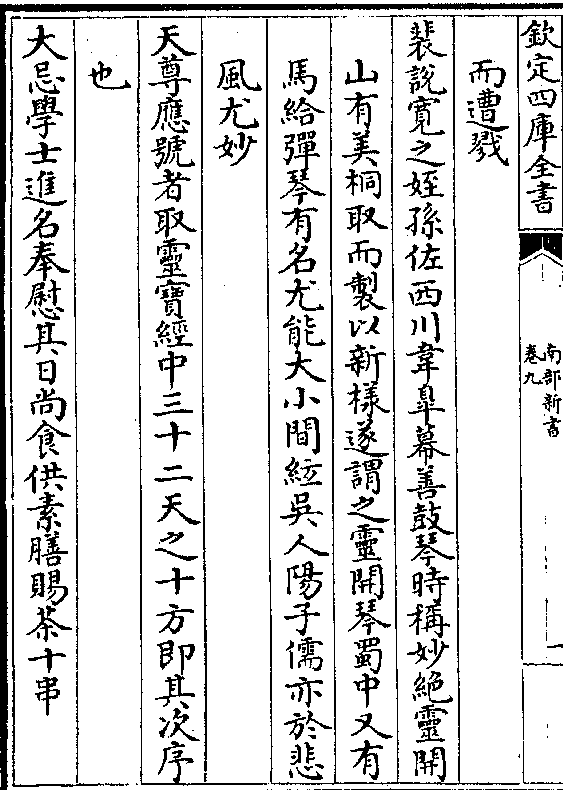 欽定四庫全書
南部新書
卷九
而遭戮
裴說寛之姪孫佐西川韋臯幕善鼓琴時稱妙絶靈開
山有美桐取而製以新樣遂謂之靈開琴蜀中又有
馬給彈琴有名尤能大小間絃吳人陽子儒亦於悲
風尤妙
天尊應號者取靈寶經中三十二天之十方即其次序
也
大忌學士進名奉慰其日尚食供素膳賜茶十串